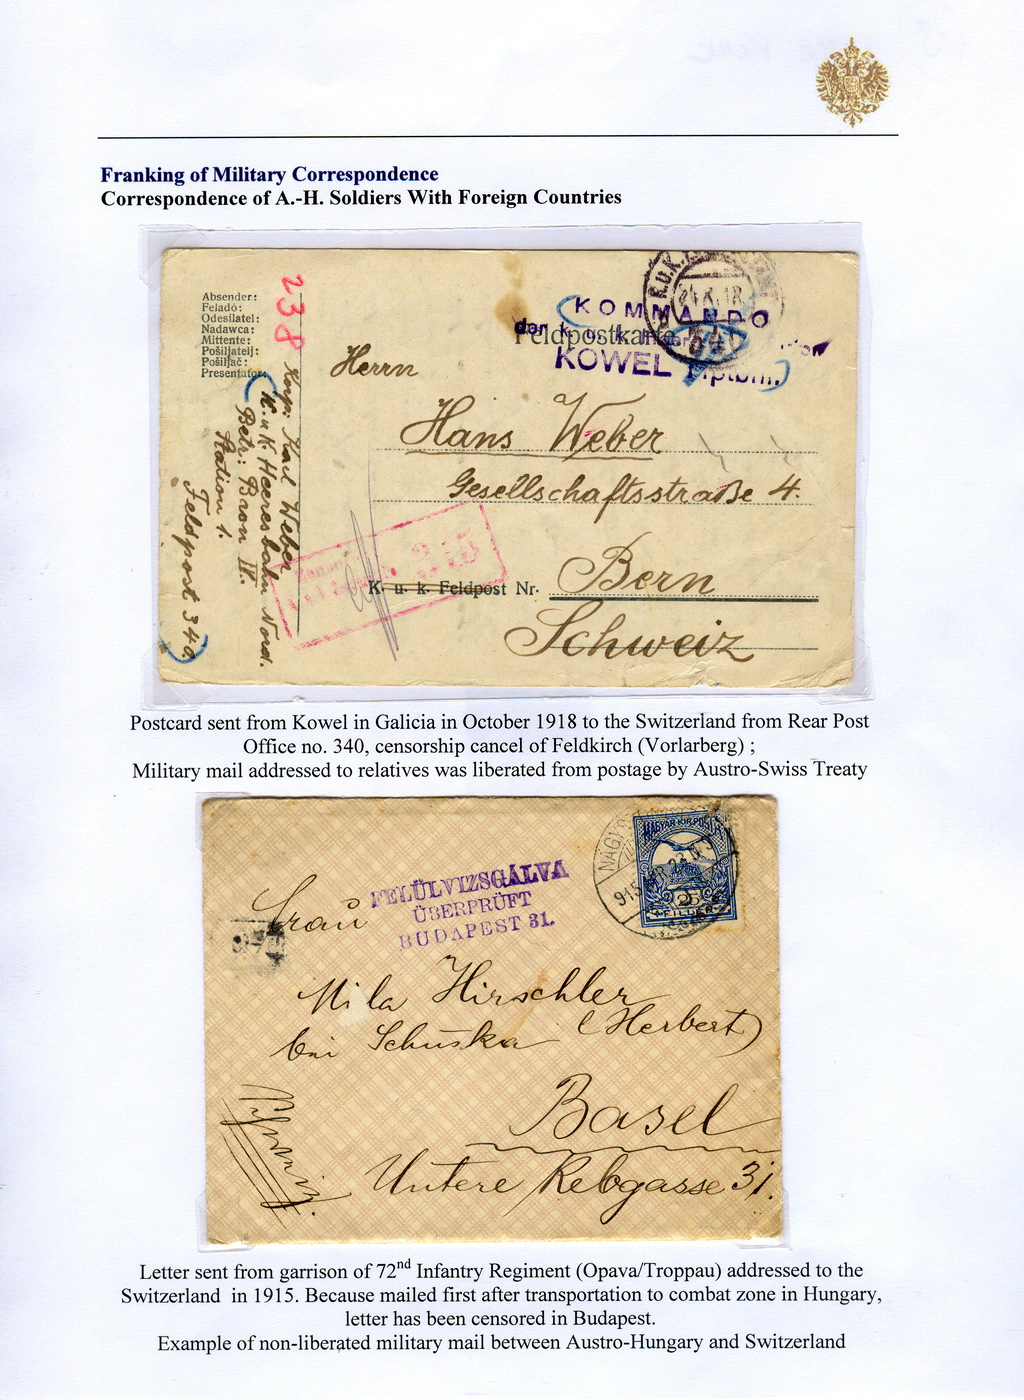 Franking of Military Correspondence
Correspondence of A.-H. Soldiers With Foreign Countries
Absender:
Feladó:
Odesílatel:
Nadawca:
Mittente:
Pošiljatelj:
Pošiljač:
Presentator:
238
Karl Weber
K.u.K. Heeresbahn Nord.
Betr: Bron IV.
Station 1.
Feldpost 340.
KOMMANDO
der k. u. k.
KOWEL
Feldpostkarte
Herrn
Hans Weber
Gesellschaftsstraße 4.
315
K. u. k. Feldpost Nr.
Bern
Schweiz
Postcard sent from Kowel in Galicia in October 1918 to the Switzerland from Rear Post
Office no. 340, censorship cancel of Feldkirch (Vorlarberg) ;
Military mail addressed to relatives was liberated from postage by Austro-Swiss Treaty
MAGYAR KIR. POSTA
25
FILLÉR
FELÜLVIZSGÁLVA
ÜBERPRÜFT
BUDAPEST 31.
Frau
Mila Hirschler
bei Schuska (Herbert)
Basel
Untere Rebgasse 31.
Schweiz.
Letter sent from garrison of 72nd Infantry Regiment (Opava/Troppau) addressed to the
Switzerland in 1915. Because mailed first after transportation to combat zone in Hungary,
letter has been censored in Budapest.
Example of non-liberated military mail between Austro-Hungary and Switzerland